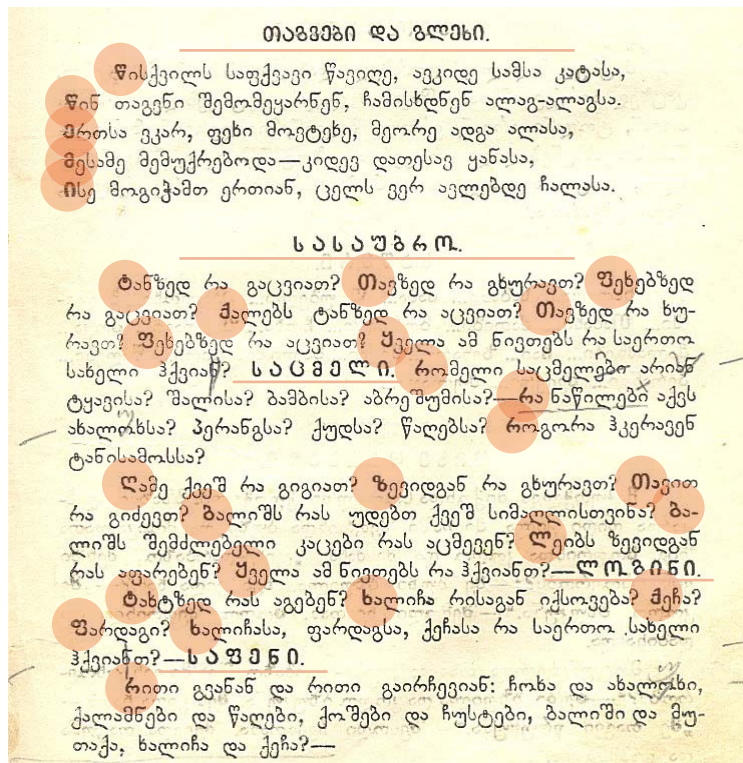 თაგვები და გლეხი.
წისქვილს საფქვავი წავიღე, ავკიდე სამსა კატასა,
წინ თაგვნი შემომეყარნენ, ჩამისხდნენ ალაგ-ალაგსა.
ერთსა ვკარ, ფეხი მოვტეხე, მეორე ადგა ალასა,
მესამე მემუქრებოდა—კიდევ დათესავ ყანასა,
ისე მოგიჭამთ ერთიან, ცელს ვერ ავლებდე ჩალასა.
სასაუბრო.
ტანზედ რა გაცვიათ? თავზედ რა გხურავთ? ფეხებზედ
რა გაცვიათ? ქალებს ტანზედ რა აცვიათ? თავზედ რა ხუ-
რავთ? ფეხებზედ რა აცვიათ? ყველა ამ ნივთებს რა საერთო
სახელი ჰქვიან? საცმელი. რომელი საცმელები არიან
ტყავისა? შალისა? ბამბისა? აბრეშუმისა?—რა ნაწილები აქვს
ახალოხსა? პერანგსა? ქუდსა? წაღებსა? როგორა ჰკერავენ
ტანისამოსსა?
ღამე ქვეშ რა გიგიათ? ზევიდგან რა გხურავთ? თავით
რა გიძევთ? ბალიშს რას უდებთ ქვეშ სიმაღლისთვინა? ბა-
ლიშს შემძლებელი კაცები რას აცმევენ? ლეიბს ზევიდგან
რას აფარებენ? ყველა ამ ნივთებს რა ჰქვიანთ?—ლოგინი.
ტახტზედ რას აგებენ? ხალიჩა რისაგან იქსოვება? ქეჩა?
ფარდაგი? ხალიჩასა, ფარდაგსა, ქეჩასა რა საერთო სახელი
ჰქვიანთ?—საფენი.
რითი გვანან და რითი გაირჩევიან: ჩოხა და ახალოხი,
ქალამნები და წაღები, ქოშები და ჩუსტები, ბალიში და მუ-
თაქა, ხალიჩა და ქეჩა?—